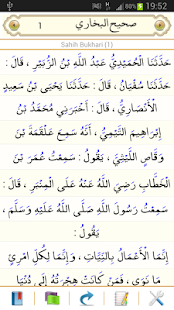 19:52
صحيح البخاري 1
Sahih Bukhari (1)
حَدَّثَنَا الْحُمَيْدِيُّ عَبْدُ اللَّهِ بْنُ الزُّبَيْرِ ، قَالَ :
حَدَّثَنَا سُفْيَانُ ، قَالَ : حَدَّثَنَا يَحْيَى بْنُ سَعِيدٍ
الْأَنْصَارِيُّ ، قَالَ : أَخْبَرَنِي مُحَمَّدُ بْنُ
إِبْرَاهِيمَ التَّيْمِيُّ ، أَنَّهُ سَمِعَ عَلْقَمَةَ بْنَ
وَقَّاصٍ اللَّيْثِيَّ ، يَقُولُ : سَمِعْتُ عُمَرَ بْنَ
الْخَطَّابِ رَضِيَ اللَّهُ عَنْهُ عَلَى الْمِنْبَرِ ، قَالَ :
سَمِعْتُ رَسُولَ اللَّهِ صَلَّى اللَّهُ عَلَيْهِ وَسَلَّمَ ،
يَقُولُ :
إِنَّمَا الْأَعْمَالُ بِالنِّيَّاتِ ، وَإِنَّمَا لِكُلِّ امْرِئٍ
مَا نَوَى ، فَمَنْ كَانَتْ هِجْرَتُهُ إِلَى دُنْيَا